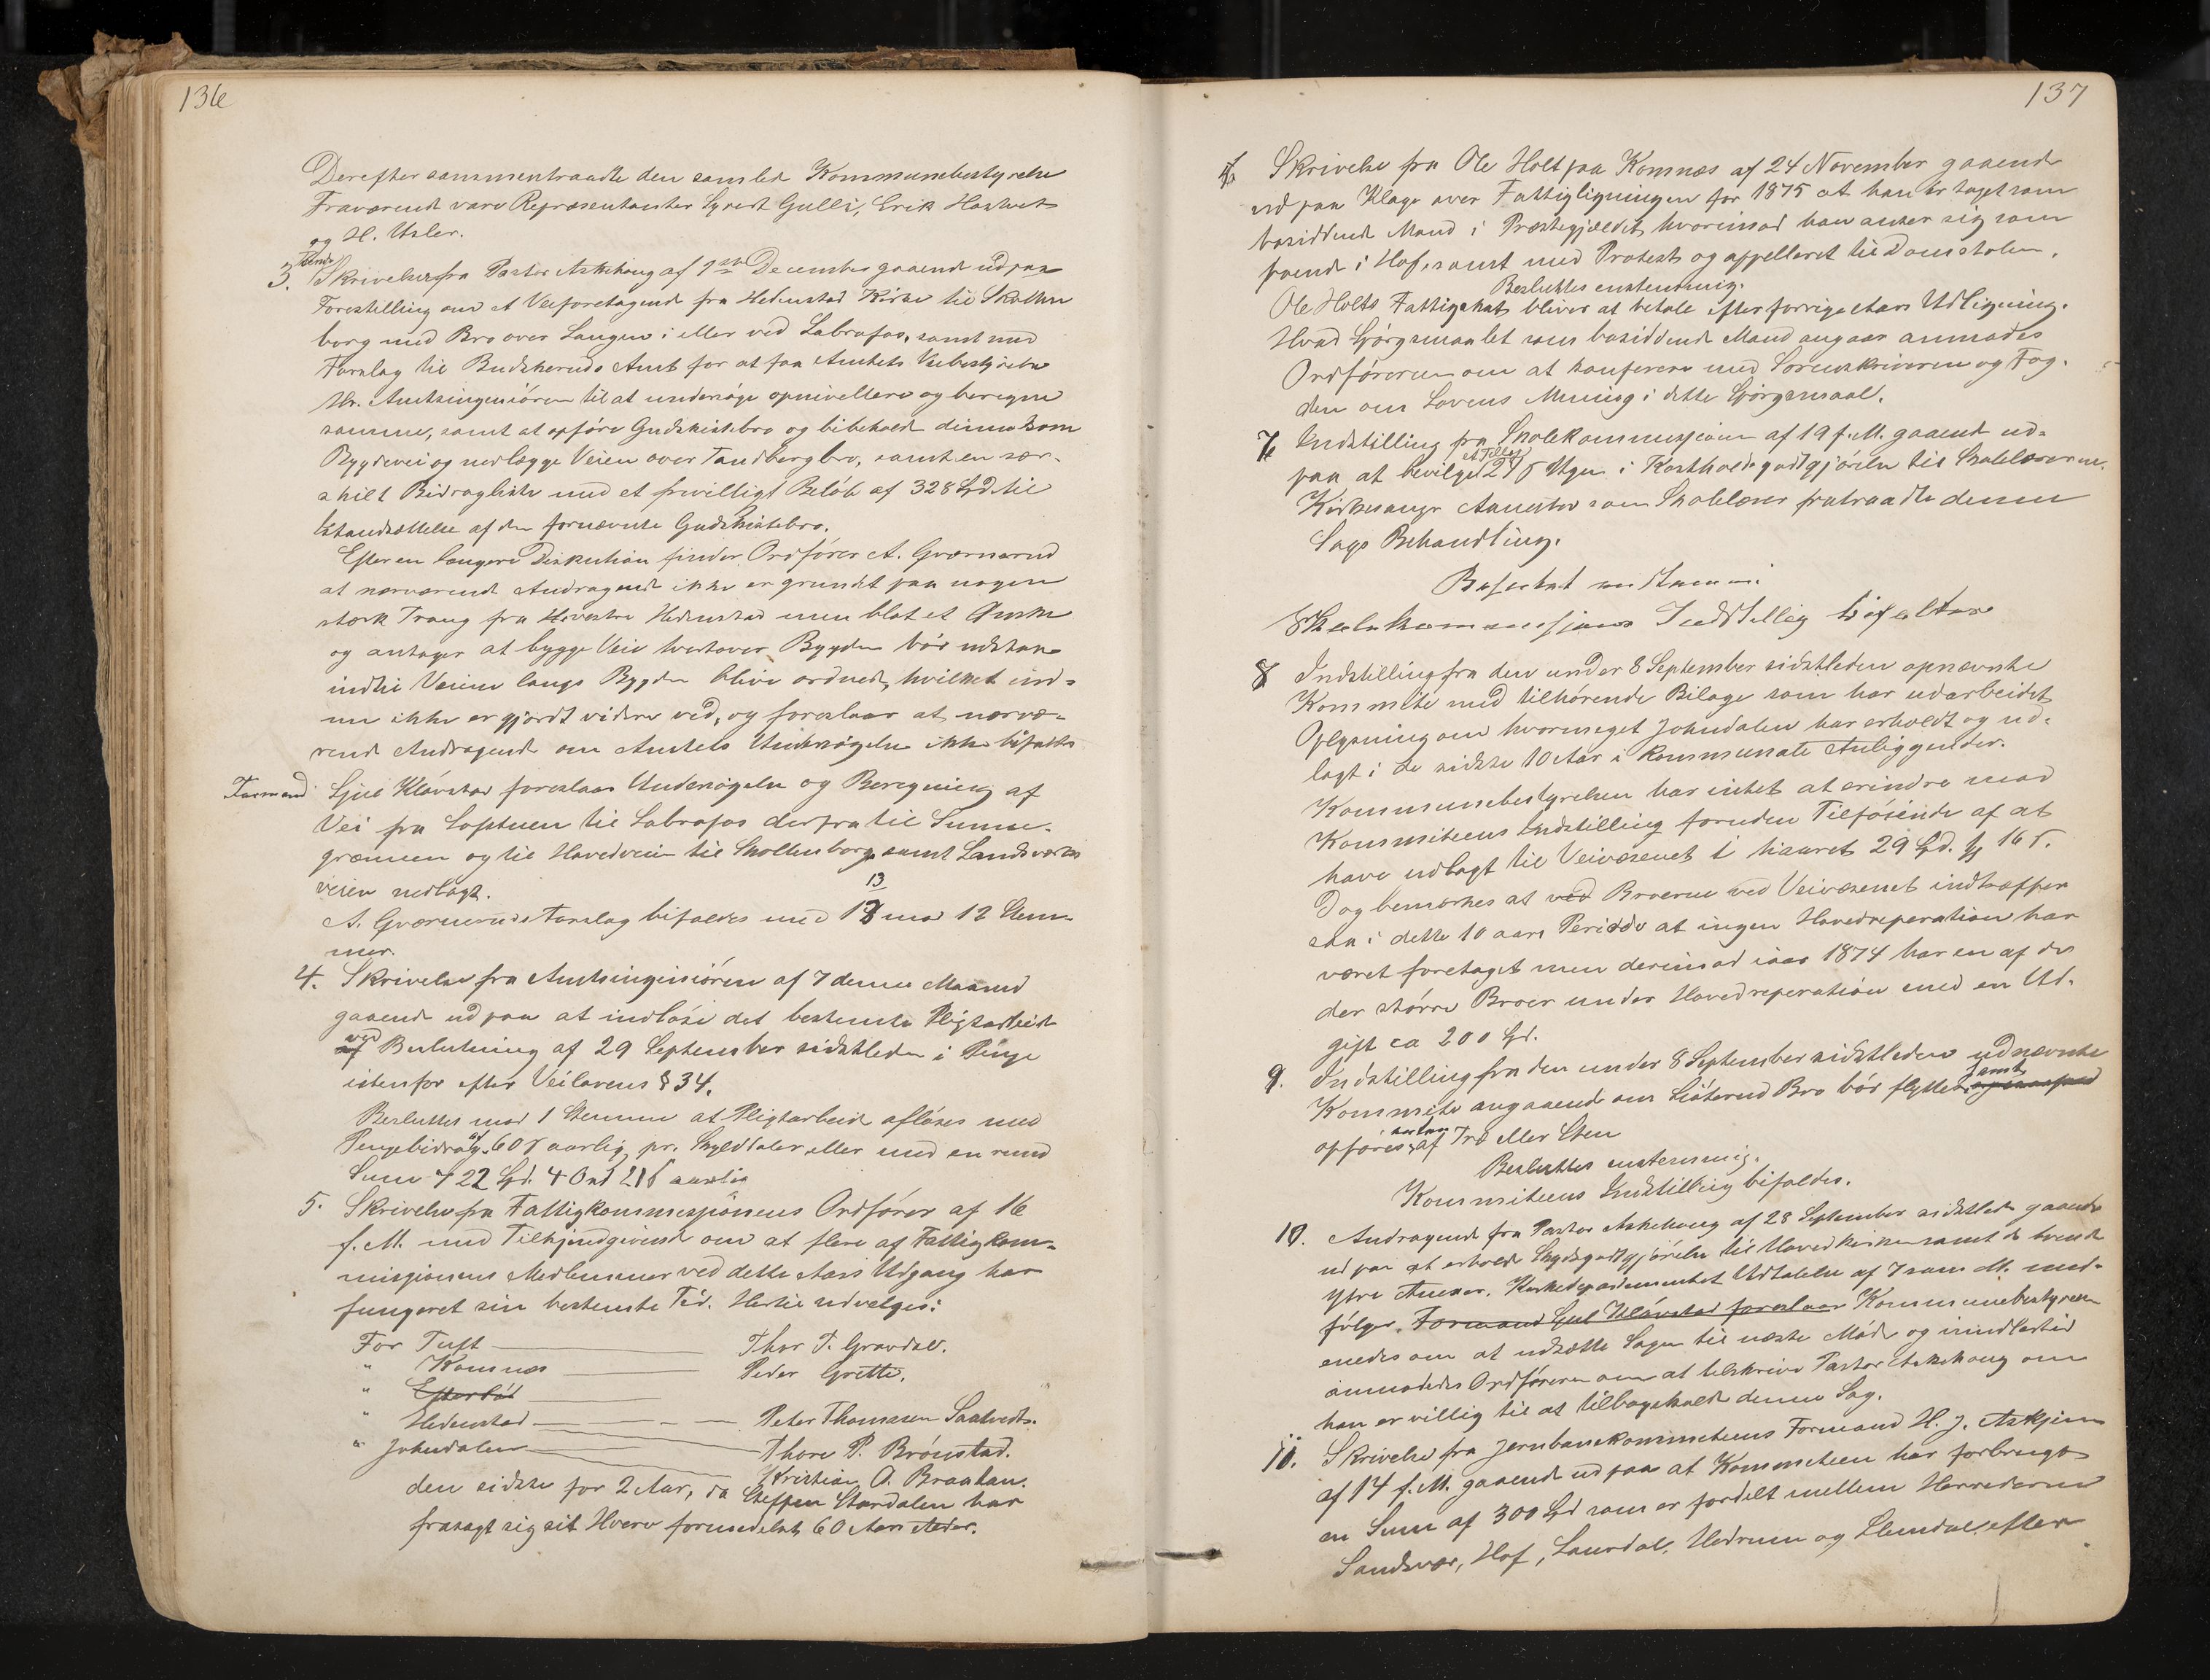 136
Derefter sammentraadte den samlede Kommunebestyrelse
Fraværende vare Repræsentanter Syvert Gulli, Erik Hostvet
og H. Usler.
3. Skrivelse fra Pastor Askehoug af 1ste December gaaende ud paa
Forestilling om et Veiforetagende fra Hedenstad Kirke til Skollen
borg med Bro over Laugen i eller ved Labrofos, samt med
Forslag til Budskeruds Amt for at faa Amtets Veibestyrelse
Hr. Amtsingeniören til at undersöge opnivellere og beregne
samme, samt at opföre Gudskistebro og bibeholde denne som
Bygdevei og nedlægge Veien over Tandbergbro, samt en sær-
skilt Bidragliste med et frivilligt Belöb af 328 Spd til
Istandsættelse af den fornævnte Gudskistebro.
Efter en længere Diskution finder Ordförer A. Gværnerud
at nærværende Andragende ikke er grundet paa nogen
stærk Trang fra Hedenstad men blot et Önske
og antager at bygge Veie tvertover Bygden bör udstaa
indtil Veiene langs Bygden blive ordnede, hvilket end-
nu ikke er gjordt videre ved, og foreslaar at nærvæ-
rende Andragende om Amtets Undersögelse ikke bifaldes
Formand Gjul Klövstad foreslaar Undersögelse og Beregning af
Vei fra Loftuen til Labrofos derfra til Summe-
grænnen og til Hovedveien til Skollenborg samt Landsværks
veien nedlagt.
13
A. Gværneruds Forslag bifaldes med 18 mod 12 Stem-
mer.
4. Skrivelse fra Amtsingeniören af 7 denne Maaned
gaaende ud paa at indlöse det bestemte Pligtarbeide
ved
af Beslutning af 29 September sidstleden i Penge
istenfor efter Veilovens § 34.
Besluttes mod 1 Stemme at Pligtarbeide aflöses med
Pengebidrag af 60 s aarlig pr. Skyldtaler eller med en rund
Sum 722 Spd. 4 Ort 21 s aarlig
5. Skrivelse fra Fattigkommisjonens Ordförer af 16
f. M. med Tilkjendgivende om at flere af Fattigkom-
misjionens Medlemmer ved dette Aars Udgang har
fungeret sin bestemte Tid. Hertil udvælges:
For Tuft — Thor T. Gravdal.
" Komnæs — Peder Grette.
" Efterlöt —
" Hedenstad — Peter Thomassen Saatvedt.
" Johndalen — Thore P. Brönstad.
Kristian O. Braatan.
den sidste for 2 Aar, da Steffen Stordalen har
frasagt sig sit Hverv formedelst 60 Aars Alder.
137
6 Skrivelse fra Ole Holt paa Komnæs af 24 November gaaende
ud paa Klage over Fattigligningen for 1875 at han er taget som
bosiddende Mand i Præstegjældet hvorimod han anser sig som
boende i Hof, samt med Protest og appelleret til Domstolen.
Besluttes enstemmig.
Ole Holts Fattigskat bliver at betale efter forrige Aars Udligning.
Hvad Spörgsmaalet som bosiddende Mand angaar anmodes
Ordföreren om at konferere med Sorenskriveren og Fog-
den om Lovens Mening i dette Spörgsmaal.
7 Indstilling fra Skolekommisjonen af 19 f. M. gaaende ud-
paa at bevilge 24 s Ugen i Kostholdsgodtgjörelse til Skolelærerne.
Kirkesanger Aanestad som Skolelærer fratraadte denne
Sags Behandling.
Besluttet enstemmi
Skolekommissjons Indstilling bifaldes
8 Indstilling fra den under 8 September sidstleden opnævnte
Kommite med tilhörende Bilage som har udarbeidet
Oplysning om hvormeget Johndalen har erholdt og ud-
lagt i de sidste 10 Aar i kommunale Anliggender.
Kommunebestyrelsen har intet at erindre mod
Kommiteens Indstilling foruden Tilföiende af at
have udlagt til Veivæsenet i tiaaret 29 Spd. 16 s.
Dog bemærkes at ved Broerne ved Veivæsenet indtræffer
saa i dette 10 aars Periode at ingen Hovedreperation har
været foretaget men derimod iaar 1874 har en af de
der större Broer under Hovedreperation med en Ud-
gift ca 200 Spd.
9. Indstilling fra den under 8 September sidstleden udnævnte
Kommite angaaende om Liöterud Bro bör flyttes samt
opföres af Træ eller Sten
Besluttes enstemmig.
Kommiteens Indstilling bifaldes.
10. Andragende fra Pastor Askehoug af 28 September sidstleden gaaende
ud paa at erholde Skydsgodtgjörelse til Hovedkirken samt de tvende
ytre Annexer. Kirkedepartementet Udtalelse af 7 sam. M. med-
fölger. Formand Gjul Klövstad foreslaar Kommunebestyrelsen
enedes om at udsætte Sagen til næste Möde og imidlertid
anmodedes Ordföreren om at tilskrive Pastor Askehoug om
han er villig til at tilbageholde denne Sag.
11. Skrivelse fra Jernbanekommiteens Formand H. J. Askjem
af 14 f. M. gaaende ud paa at Kommiteen har forbrugt
en Sum af 300 Spd som er fordelt mellem Herrederne
Sandsvær, Hof, Laurdal, Hedrum og Slemdal efter